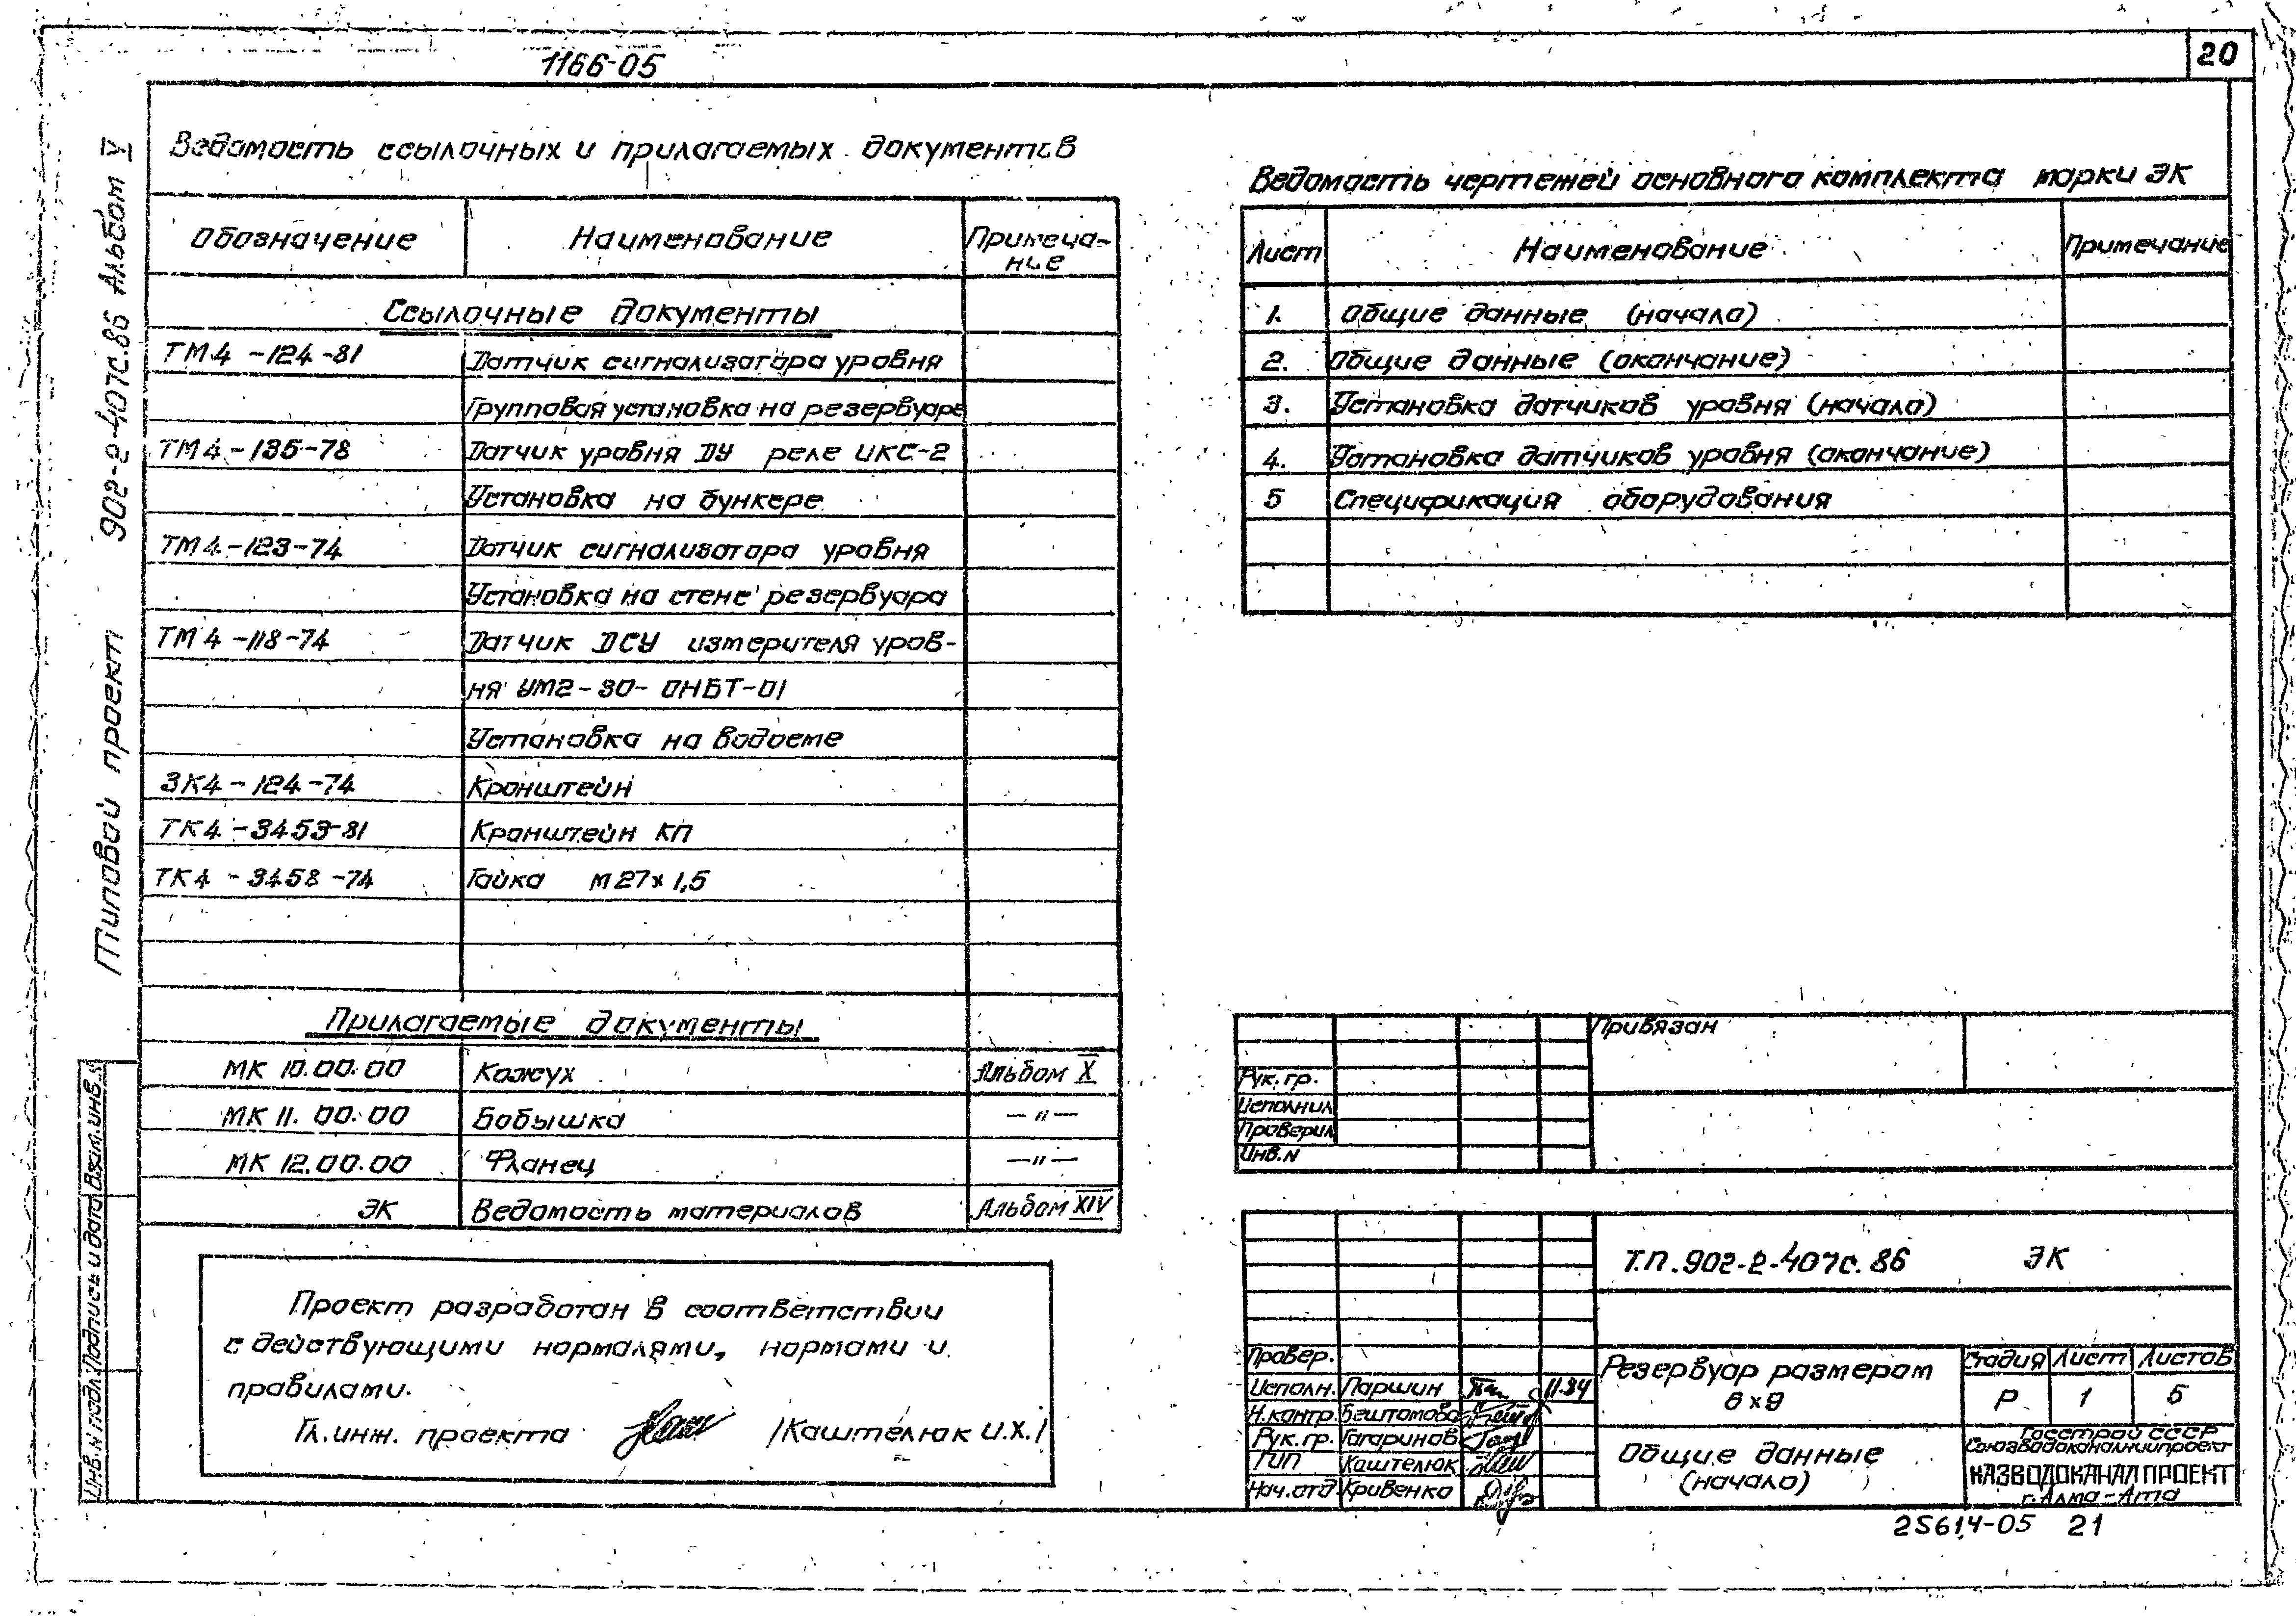 1166-05
20
Типовой проект 902-2-407с.86 Альбом V
Ведомость ссылочных и прилагаемых документов
Обозначение Наименование Примеча-
ние
Ссылочные документы
ТМ4-124-81 Датчик сигнализатора уровня
Групповая установка на резервуаре
ТМ4-135-78 Датчик уровня ДУ реле ИКС-2
Установка на бункере
ТМ4-123-74 Датчик сигнализатора уровня
Установка на стене резервуара
ТМ4-118-74 Датчик ДСУ измерителя уров-
ня УМ2-30-ОНБТ-01
Установка на водоеме
ЗК4-124-74 Кронштейн
ТК4-3453-81 Кронштейн КП
ТК4-3458-74 Гайка М27х1,5
Прилагаемые документы
МК 10.00.00 Кожух Альбом X
МК 11.00.00 Бобышка —"—
МК 12.00.00 Фланец —"—
ЭК Ведомость материалов Альбом XIV
Проект разработан в соответствии
с действующими нормалями, нормами и
правилами.
Гл. инж. проекта /Каштелюк И.Х./
Инв. N подл. Подпись и дата Взам. инв.
Ведомость чертежей основного комплекта марки ЭК
Лист Наименование Примечание
1. Общие данные (начало)
2. Общие данные (окончание)
3. Установка датчиков уровня (начало)
4. Установка датчиков уровня (окончание)
5 Спецификация оборудования
Привязан
Рук. гр.
Исполнил
Проверил
Инв. N
Т.П. 902-2-407с.86 ЭК
Провер.
Исполн. Паршин 11.84
Н. контр. Бештомова
Рук. гр. Гагаринов
ГИП Каштелюк
Нач. отд. Кривенко
Резервуар размером
6х9
Стадия Лист Листов
Р 1 5
Общие данные
(начало)
Госстрой СССР
Союзводоканалниипроект
КАЗВОДОКАНАЛПРОЕКТ
г. Алма-Ата
25614-05 21